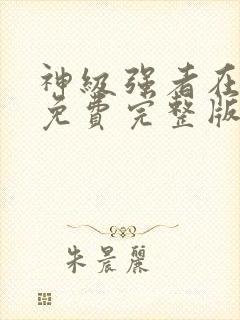 神级强者在
免费完整版
朱晨丽